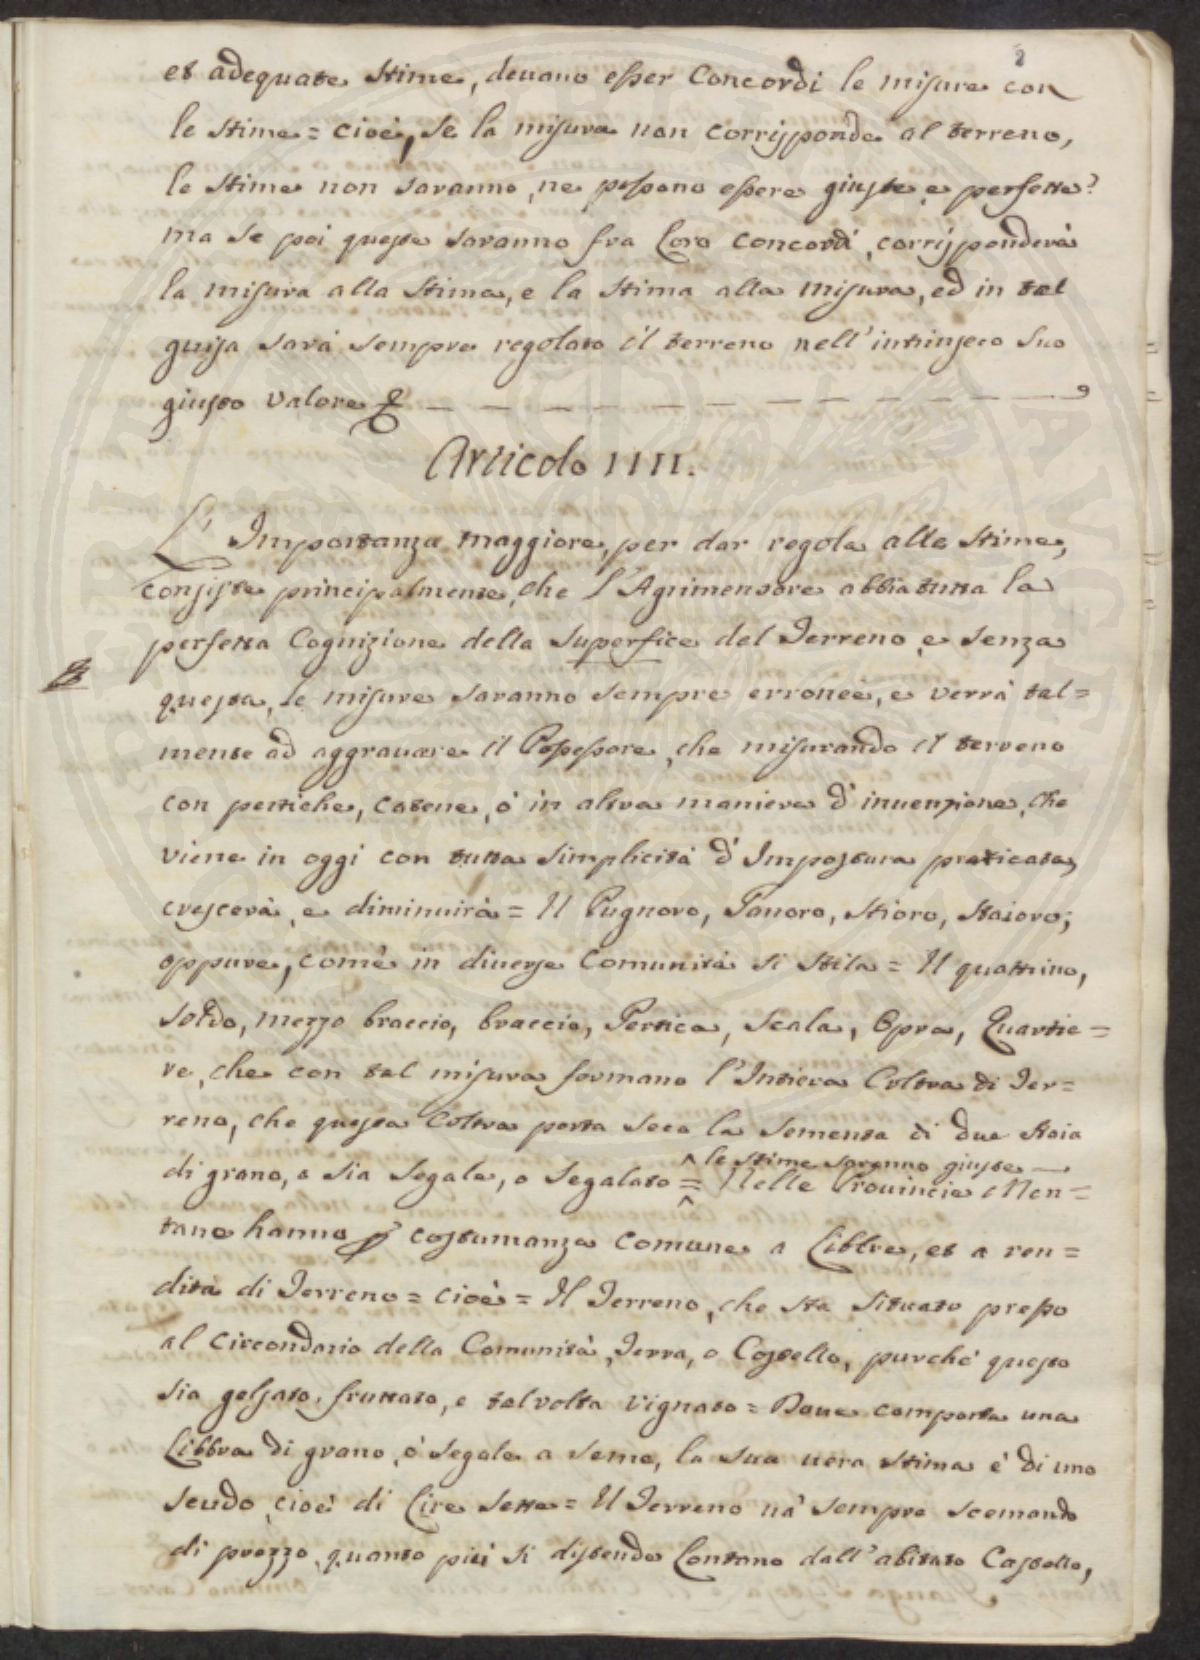 2
et adequate stime, devano esser Concordi le misure con
le stime = cioè, se la misura non corrisponde al terreno,
le stime non saranno, ne possono essere giuste, e perfette?
ma se poi queste saranno fra Loro Concordi, corrisponderà
la misura alla stima, e la stima alla misura, ed in tal
guisa sarà sempre regolato il terreno nell'intrinseco suo
giusto valore
Articolo IIII.
L'Importanza maggiore, per dar regola alle stime,
consiste principalmente, che l'Agrimensore abbia tutta la
perfetta Cognizione della superfice del Terreno, e senza
questa, le misure saranno sempre erronee, e verrà tal=
mente ad aggravare il Possessore, che misurando il terreno
con pertiche, catene, ò in altra maniera d'invenzione, che
viene in oggi con tutta simplicità d'Impostura praticata,
crescerà, e diminuirà = Il Pugnoro, Panoro, Stioro, Staioro;
oppure, come in diverse Comunità si stila = Il quattrino,
soldo, mezzo braccio, braccio, Pertica, Scala, Opra, Quartie=
re, che con tal misura formano l'Intiera Coltra di Ter=
reno, che questa Coltra porta seco la sementa di due staia
^ le stime saranno giuste
di grano, o sia segale, o segalato = Nelle Provincie Mon=
tane hanno p costumanza comune a Libbre, et a ren=
dita di Terreno = cioè = Il Terreno, che sta situato presso
al circondario della Comunità, Terra, o Castello, purchè questo
sia gelsato, fruttato, e talvolta vignato = Dove comporta una
Libbra di grano, ò segale a seme, la sua vera stima è di uno
scudo, cioè di Lire sette = Il Terreno và sempre scemando
di prezzo, quanto più si distende Lontano dall'abitato Castello,